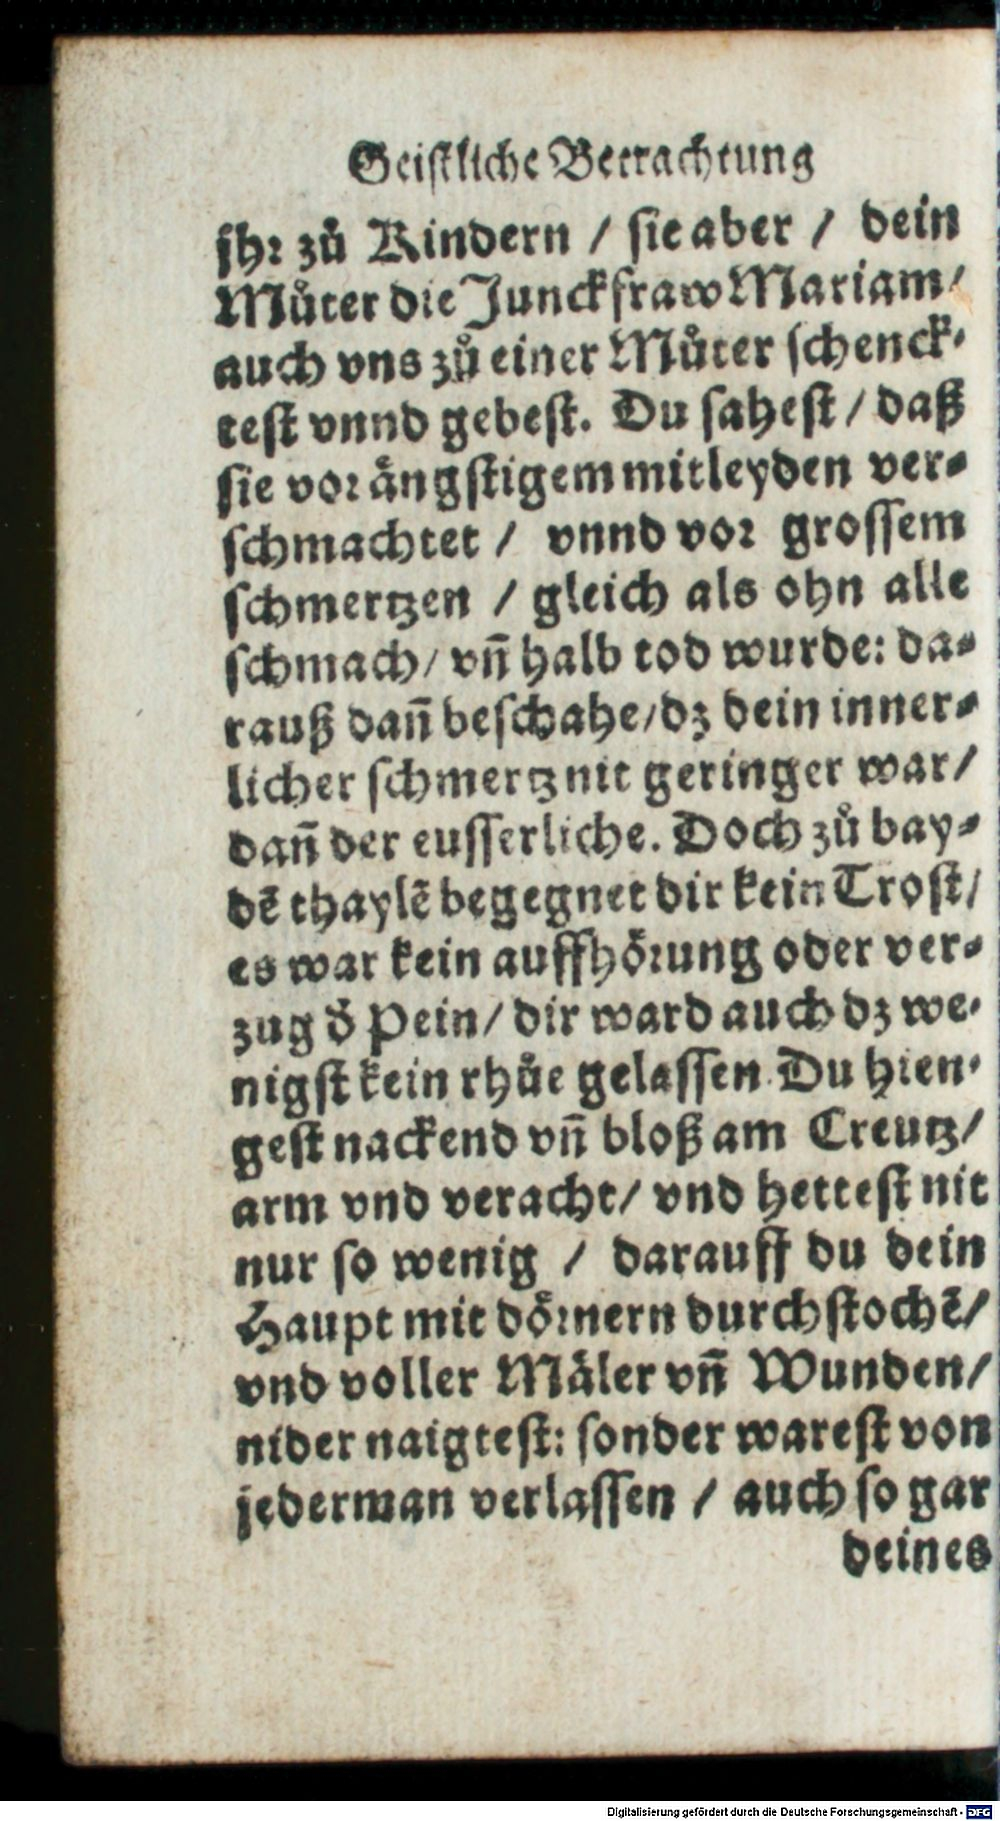 Geistliche Betrachtung
jhr zů Kindern / sie aber / dein
Můter die Junckfraw Mariam/
auch vns zů einer Můter schenck-
test vnnd gebest. Du sahest / daß
sie vor ängstigem mitleyden ver-
schmachtet / vnnd vor grossem
schmertzen / gleich als ohn alle
schmach / vñ halb tod wurde: da-
rauß dañ beschahe/ dz dein inner-
licher schmertz nit geringer war/
dañ der eusserliche. Doch zů bay-
dē thaylē begegnet dir kein Trost/
es war kein auffhörung oder ver-
zug d̛ Pein/ dir ward auch dz we-
nigst kein rhůe gelassen. Du hien-
gest nackend vñ bloß am Creutz/
arm vnd veracht/ vnd hettest nit
nur so wenig / darauff du dein
Haupt mit dörnern durchstochē/
vnd voller Mäler vñ Wunden/
nider naigtest: sonder warest von
jederman verlassen / auch so gar
deines
Digitalisierung gefördert durch die Deutsche Forschungsgemeinschaft - DFG